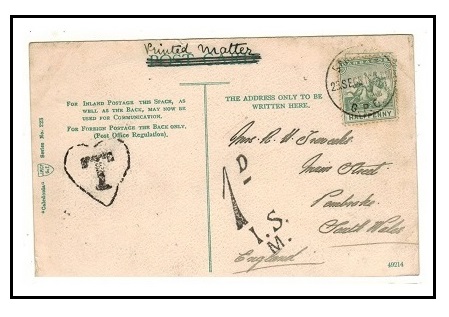 Printed Matter
POST
FOR INLAND POSTAGE THIS SPACE, AS
WELL AS THE BACK, MAY NOW BE
USED FOR COMMUNICATION.
FOR FOREIGN POSTAGE THE BACK ONLY.
(Post Office Regulation).
THE ADDRESS ONLY TO BE
WRITTEN HERE.
HALFPENNY
G.P.O.
T
D-
1
I.S.
M.
Mrs. R. W.
Main Street
Pembroke
South Wales
England
Series No. 725
"Caledonia"
49214